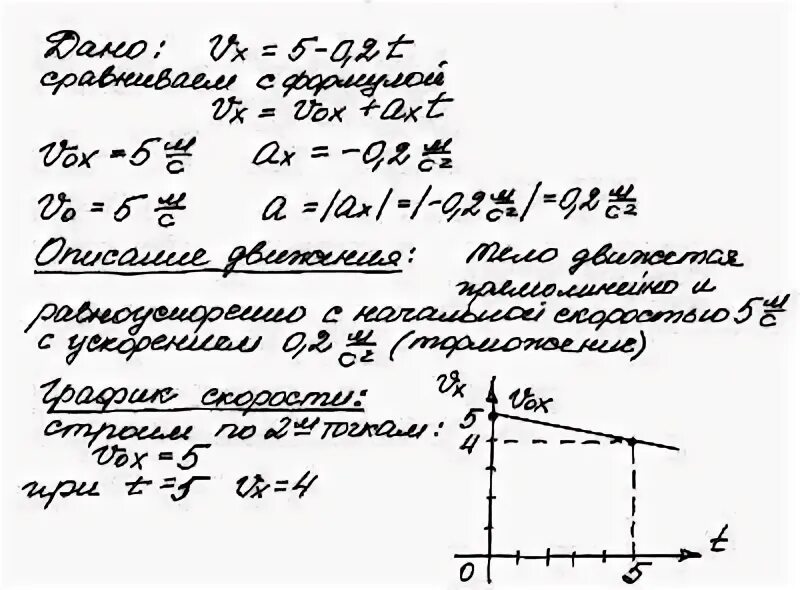 Дано: Vx = 5 - 0,2t
сравниваем с формулой
Vx = Vox + axt
Vox = 5 м/с ax = -0,2 м/с²
Vo = 5 м/с a = |ax| = |-0,2 м/с²| = 0,2 м/с²
Описание движения: тело движется
прямолинейно и
равноускоренно с начальной скоростью 5 м/с
с ускорением 0,2 м/с² (торможение)
График скорости:
строим по 2м точкам:
Vox = 5
при t = 5 Vx = 4
Vx
Vox
5
4
0
5
t